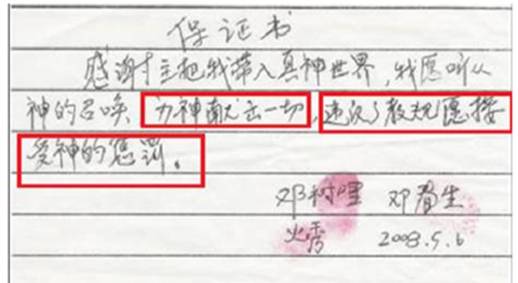 保证书
感谢主把我带入真神世界,我愿听从
神的召唤,为神献出一切,违反了教规愿接
受神的惩罚。
邓树 邓春生
火秀 2008.5.6